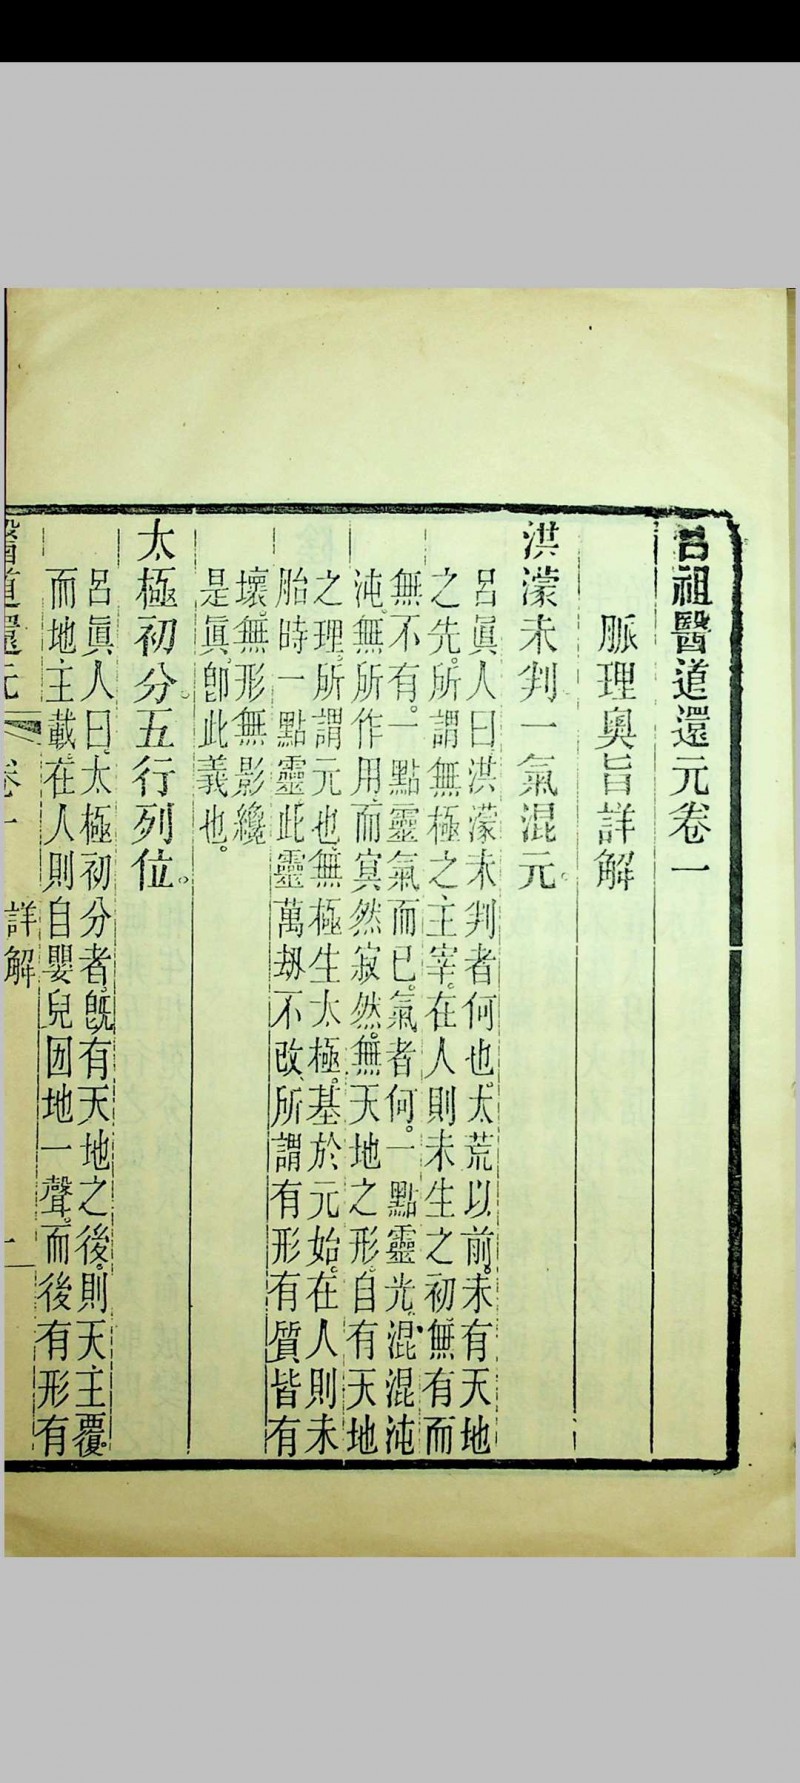 呂祖醫道還元卷一
脈理奧旨詳解
洪濛未判一氣混元。
呂眞人曰洪濛未判者何也。太荒以前。未有天地
之先。所謂無極之主宰。在人則未生之初。無有而
無不有。一點靈氣而已。氣者何。一點靈光。混混沌
沌。無所作用。而寞然寂然。無天地之形。自有天地
之理。所謂元也。無極生太極。基於元始。在人則未
胎時一點靈。此靈萬劫不改。所謂有形有質皆有
壞。無形無影纔
是眞。卽此義也。
太極初分。五行列位。
呂眞人曰。太極初分者。旣有天地之後。則天主覆。
而地主載。在人則自嬰兒囡地一聲。而後有形有
醫道還元 卷一 詳解 一